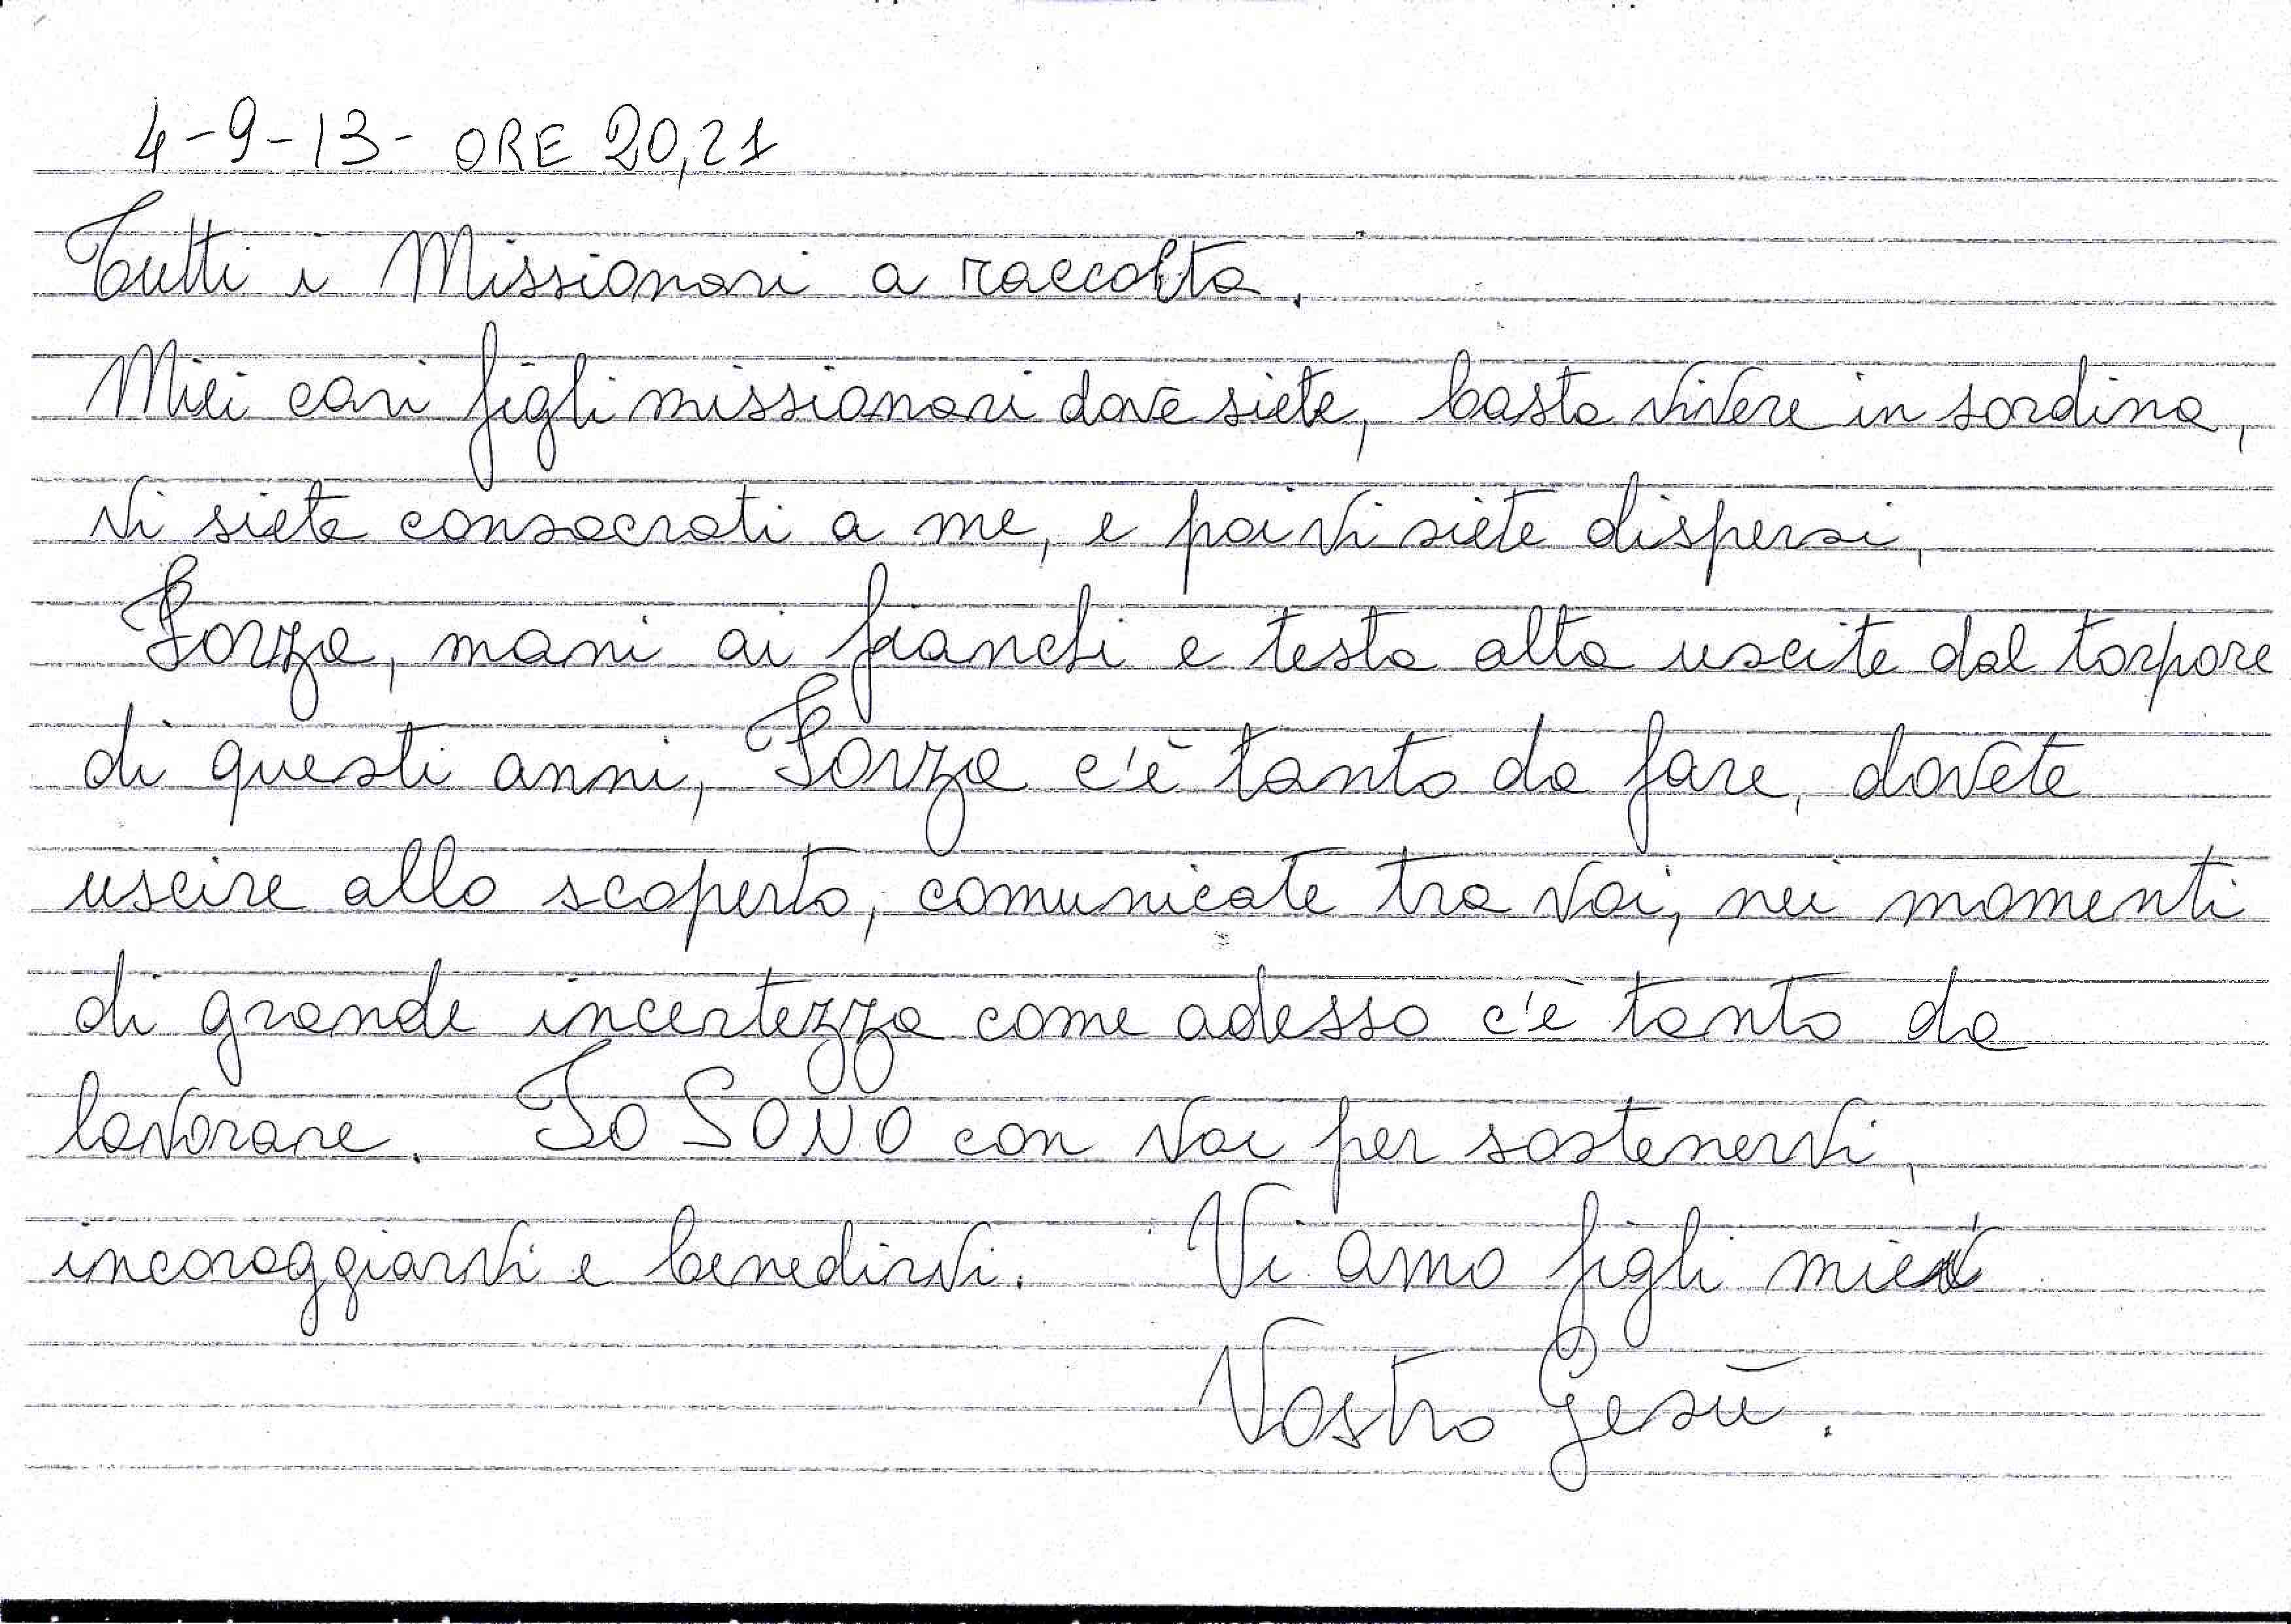 4-9-13- ORE 20,21
Tutti i Missionari a raccolta.
Miei cari figli missionari dove siete, basta vivere in sordina,
vi siete consacrati a me, e poi vi siete dispersi,
Forza, mani ai fianchi e testa alta uscite dal torpore
di questi anni, Forza c'è tanto da fare, dovete
uscire allo scoperto, comunicate tra voi, nei momenti
di grande incertezza come adesso c'è tanto da
lavorare. Io SONO con voi per sostenervi,
incoraggiarvi e benedirvi. Vi amo figli miei
Vostro Gesù.